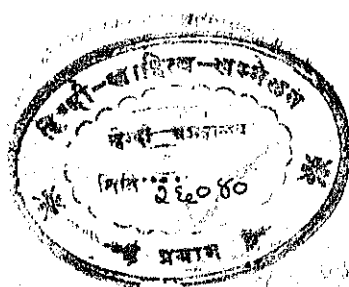 हिन्दी-साहित्य-सम्मेलन
हिन्दी संग्रहालय
मिति....
२६०४०
प्रयाग